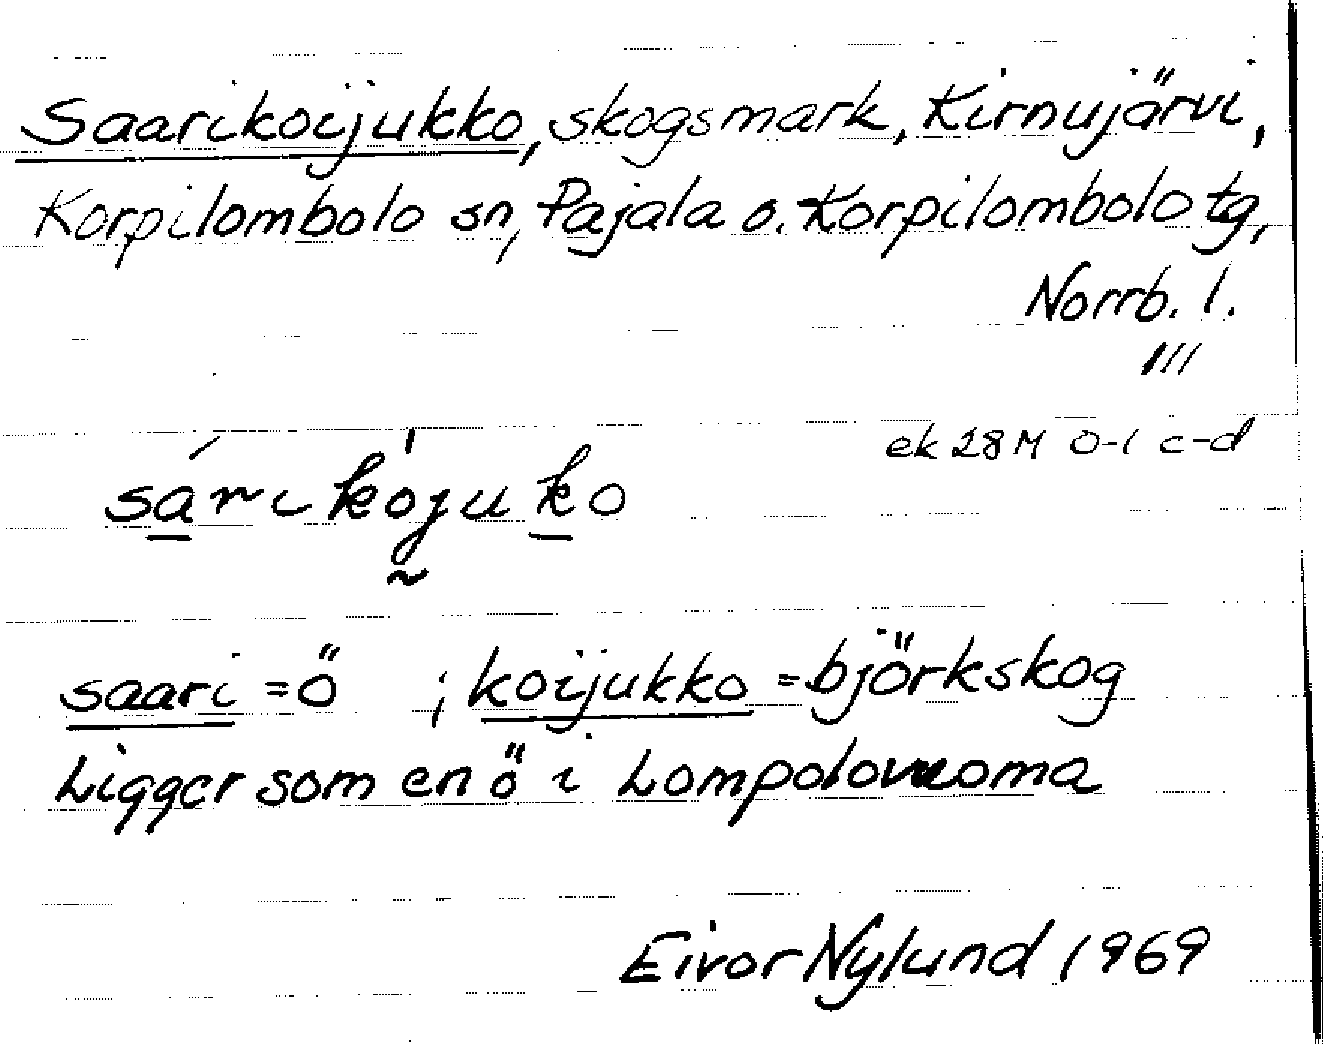 Saarikoijukko, skogsmark, Kirnujärvi,
Korpilombolo sn, Pajala o. Korpilombolo tg,
Norrb. l.
III
ek 28 M 0-1 c-d
sárikojuko
saari = ö ; koijukko = björkskog
Ligger som en ö i Lompolovuoma
Eivor Nylund 1969